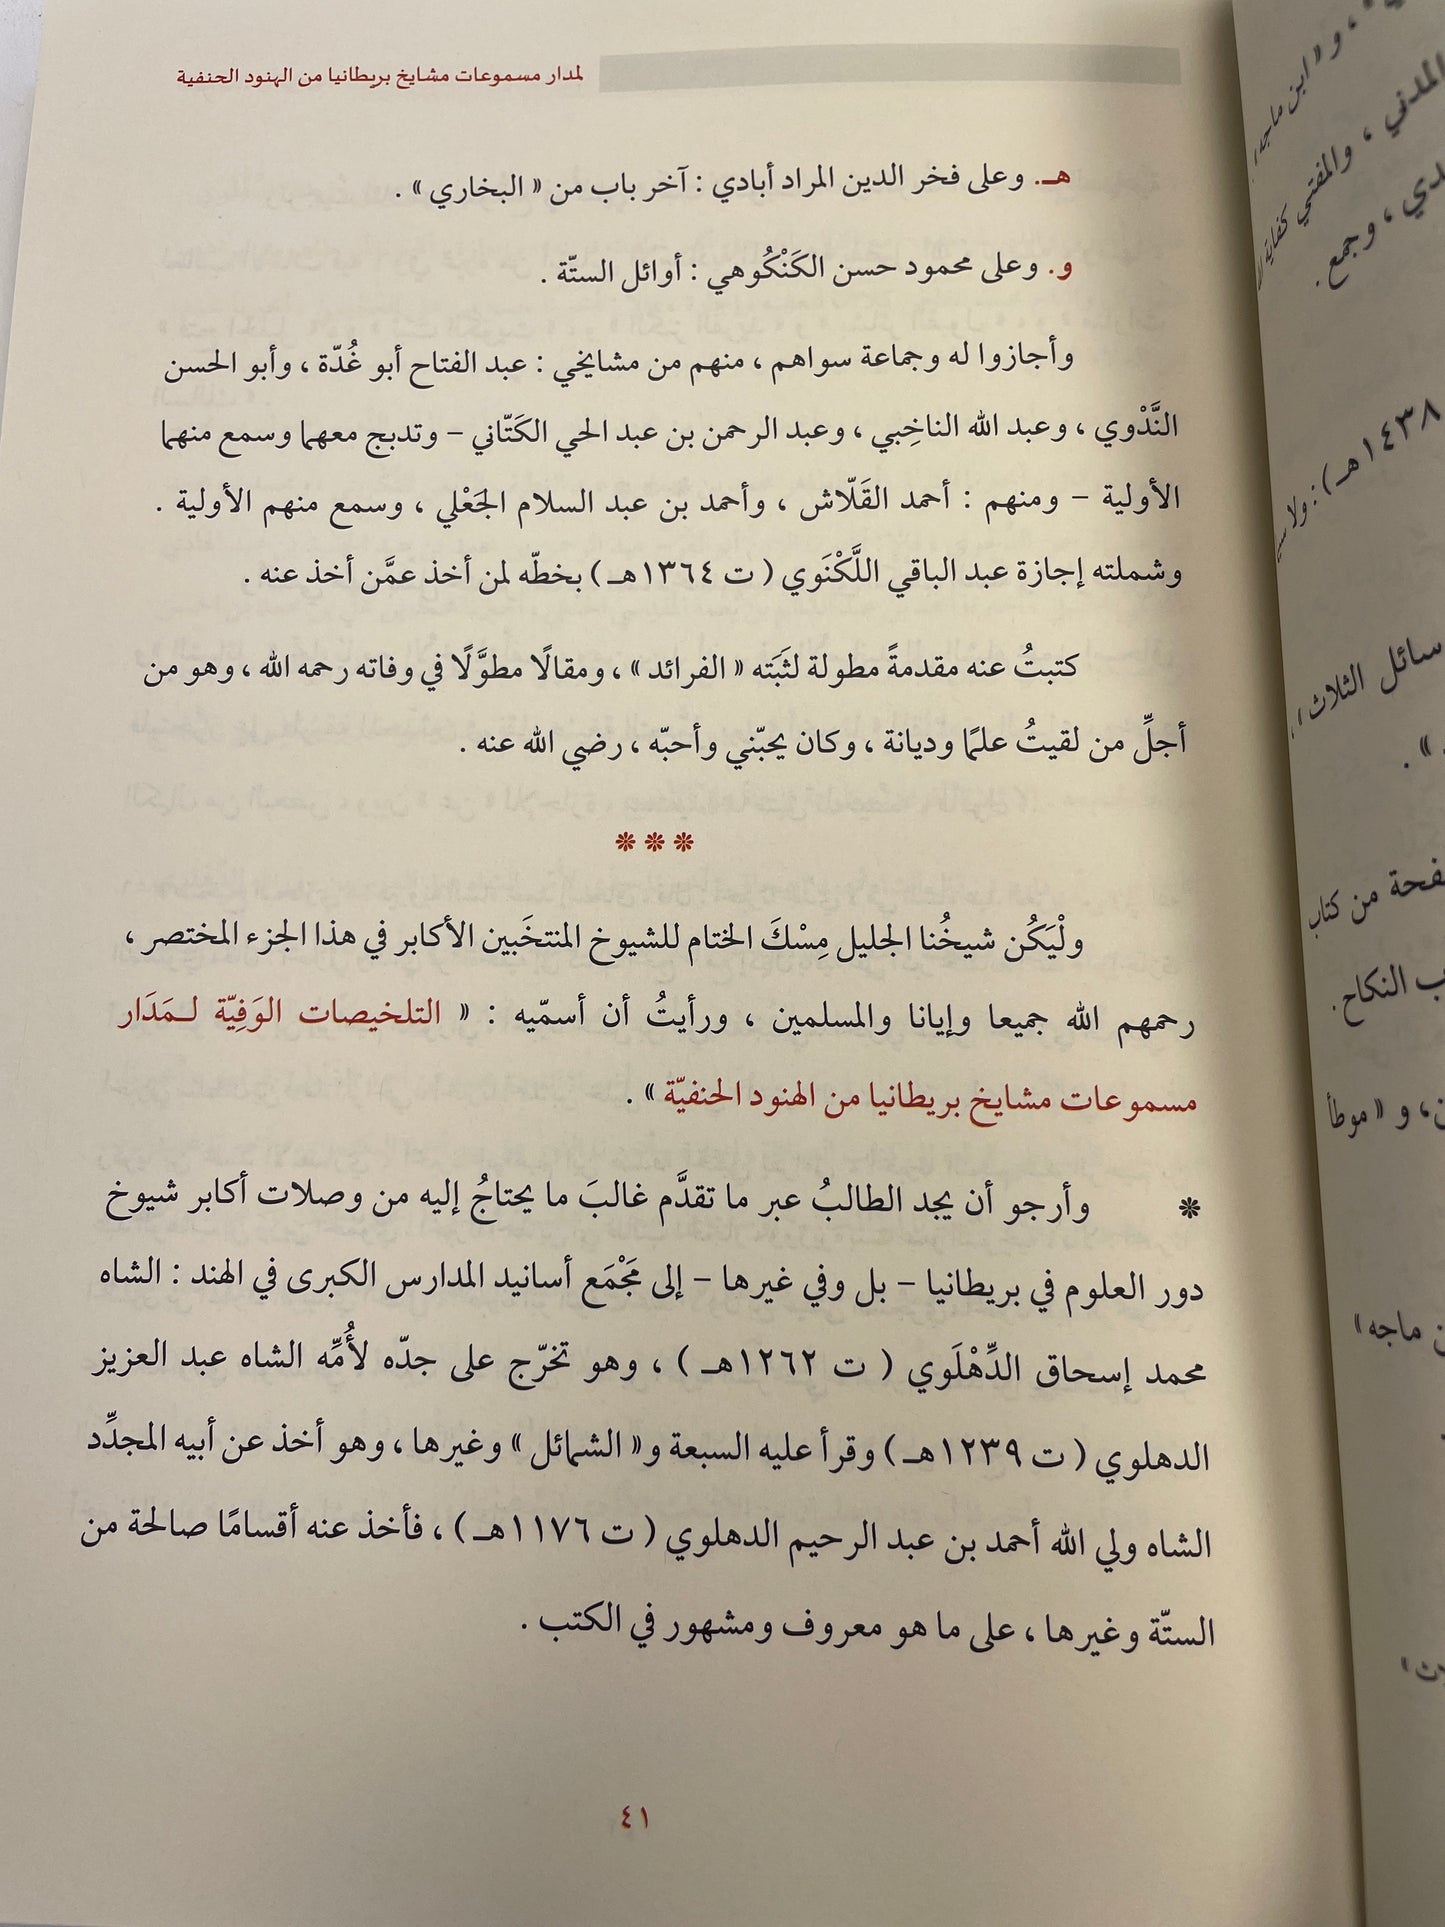 لمدار مسموعات مشايخ بريطانيا من الهنود الحنفية
هـ. وعلى فخر الدين المراد أبادي : آخر باب من « البخاري » .
و. وعلى محمود حسن الكَنْكُوهي : أوائل الستّة .
وأجازوا له وجماعة سواهم ، منهم من مشايخي : عبد الفتاح أبو غُدّة ، وأبو الحسن
النَّدْوي ، وعبد الله الناخِبي ، وعبد الرحمن بن عبد الحي الكَتّاني – وتدبج معهما وسمع منهما
الأولية – ومنهم : أحمد القَلّاش ، وأحمد بن عبد السلام الجَعْلي ، وسمع منهم الأولية .
وشملته إجازة عبد الباقي اللَّكْنَوي ( ت ١٣٦٤هـ ) بخطّه لمن أخذ عمَّن أخذ عنه .
كتبتُ عنه مقدمةً مطولة لثَبَته « الفرائد » ، ومقالًا مطوَّلًا في وفاته رحمه الله ، وهو من
أجلِّ من لقيتُ علمًا وديانة ، وكان يحبّني وأحبّه ، رضي الله عنه .
ولْيَكُن شيخُنا الجليل مِسْكَ الختام للشيوخ المنتخَبين الأكابر في هذا الجزء المختصر ،
رحمهم الله جميعا وإيانا والمسلمين ، ورأيتُ أن أسمّيه : « التلخيصات الوَفِيّة لـمَدَار
مسموعات مشايخ بريطانيا من الهنود الحنفيّة » .
وأرجو أن يجد الطالبُ عبر ما تقدَّم غالبَ ما يحتاجُ إليه من وصلات أكابر شيوخ
دور العلوم في بريطانيا – بل وفي غيرها – إلى مَجْمَع أسانيد المدارس الكبرى في الهند : الشاه
محمد إسحاق الدِّهْلَوي ( ت ١٢٦٢هـ ) ، وهو تخرّج على جدّه لأُمِّه الشاه عبد العزيز
الدهلوي ( ت ١٢٣٩هـ ) وقرأ عليه السبعة و« الشمائل » وغيرها ، وهو أخذ عن أبيه المجدِّد
الشاه ولي الله أحمد بن عبد الرحيم الدهلوي ( ت ١١٧٦هـ ) ، فأخذ عنه أقسامًا صالحة من
الستّة وغيرها ، على ما هو معروف ومشهور في الكتب .
٤١
و« ابن ماجه
المدني ، والمفتي كفاية
وجمع .
١٤٣٨هـ ) :
الثلاث
من كتاب
النكاح .
و « موطأ
ماجه »